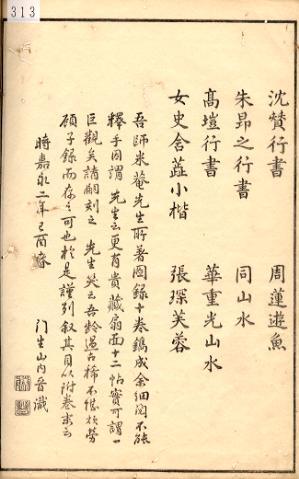 313
沈贊行書　周蓮遊魚
朱昻之行書　同山水
高塏行書　華重光山水
女史含蕋小楷　張琛芙蓉
吾師米菴先生所著圖錄十卷鐫成余細閱不能
釋手因謂　先生云更有貴藏扇面十二帖實可謂一
巨觀矣請嗣刻之　先生笑云吾齡過古稀不堪煩勞
碩子錄而存之可也於是謹列叙其目以附卷末云
時嘉永二年己酉春
門生山内晋識